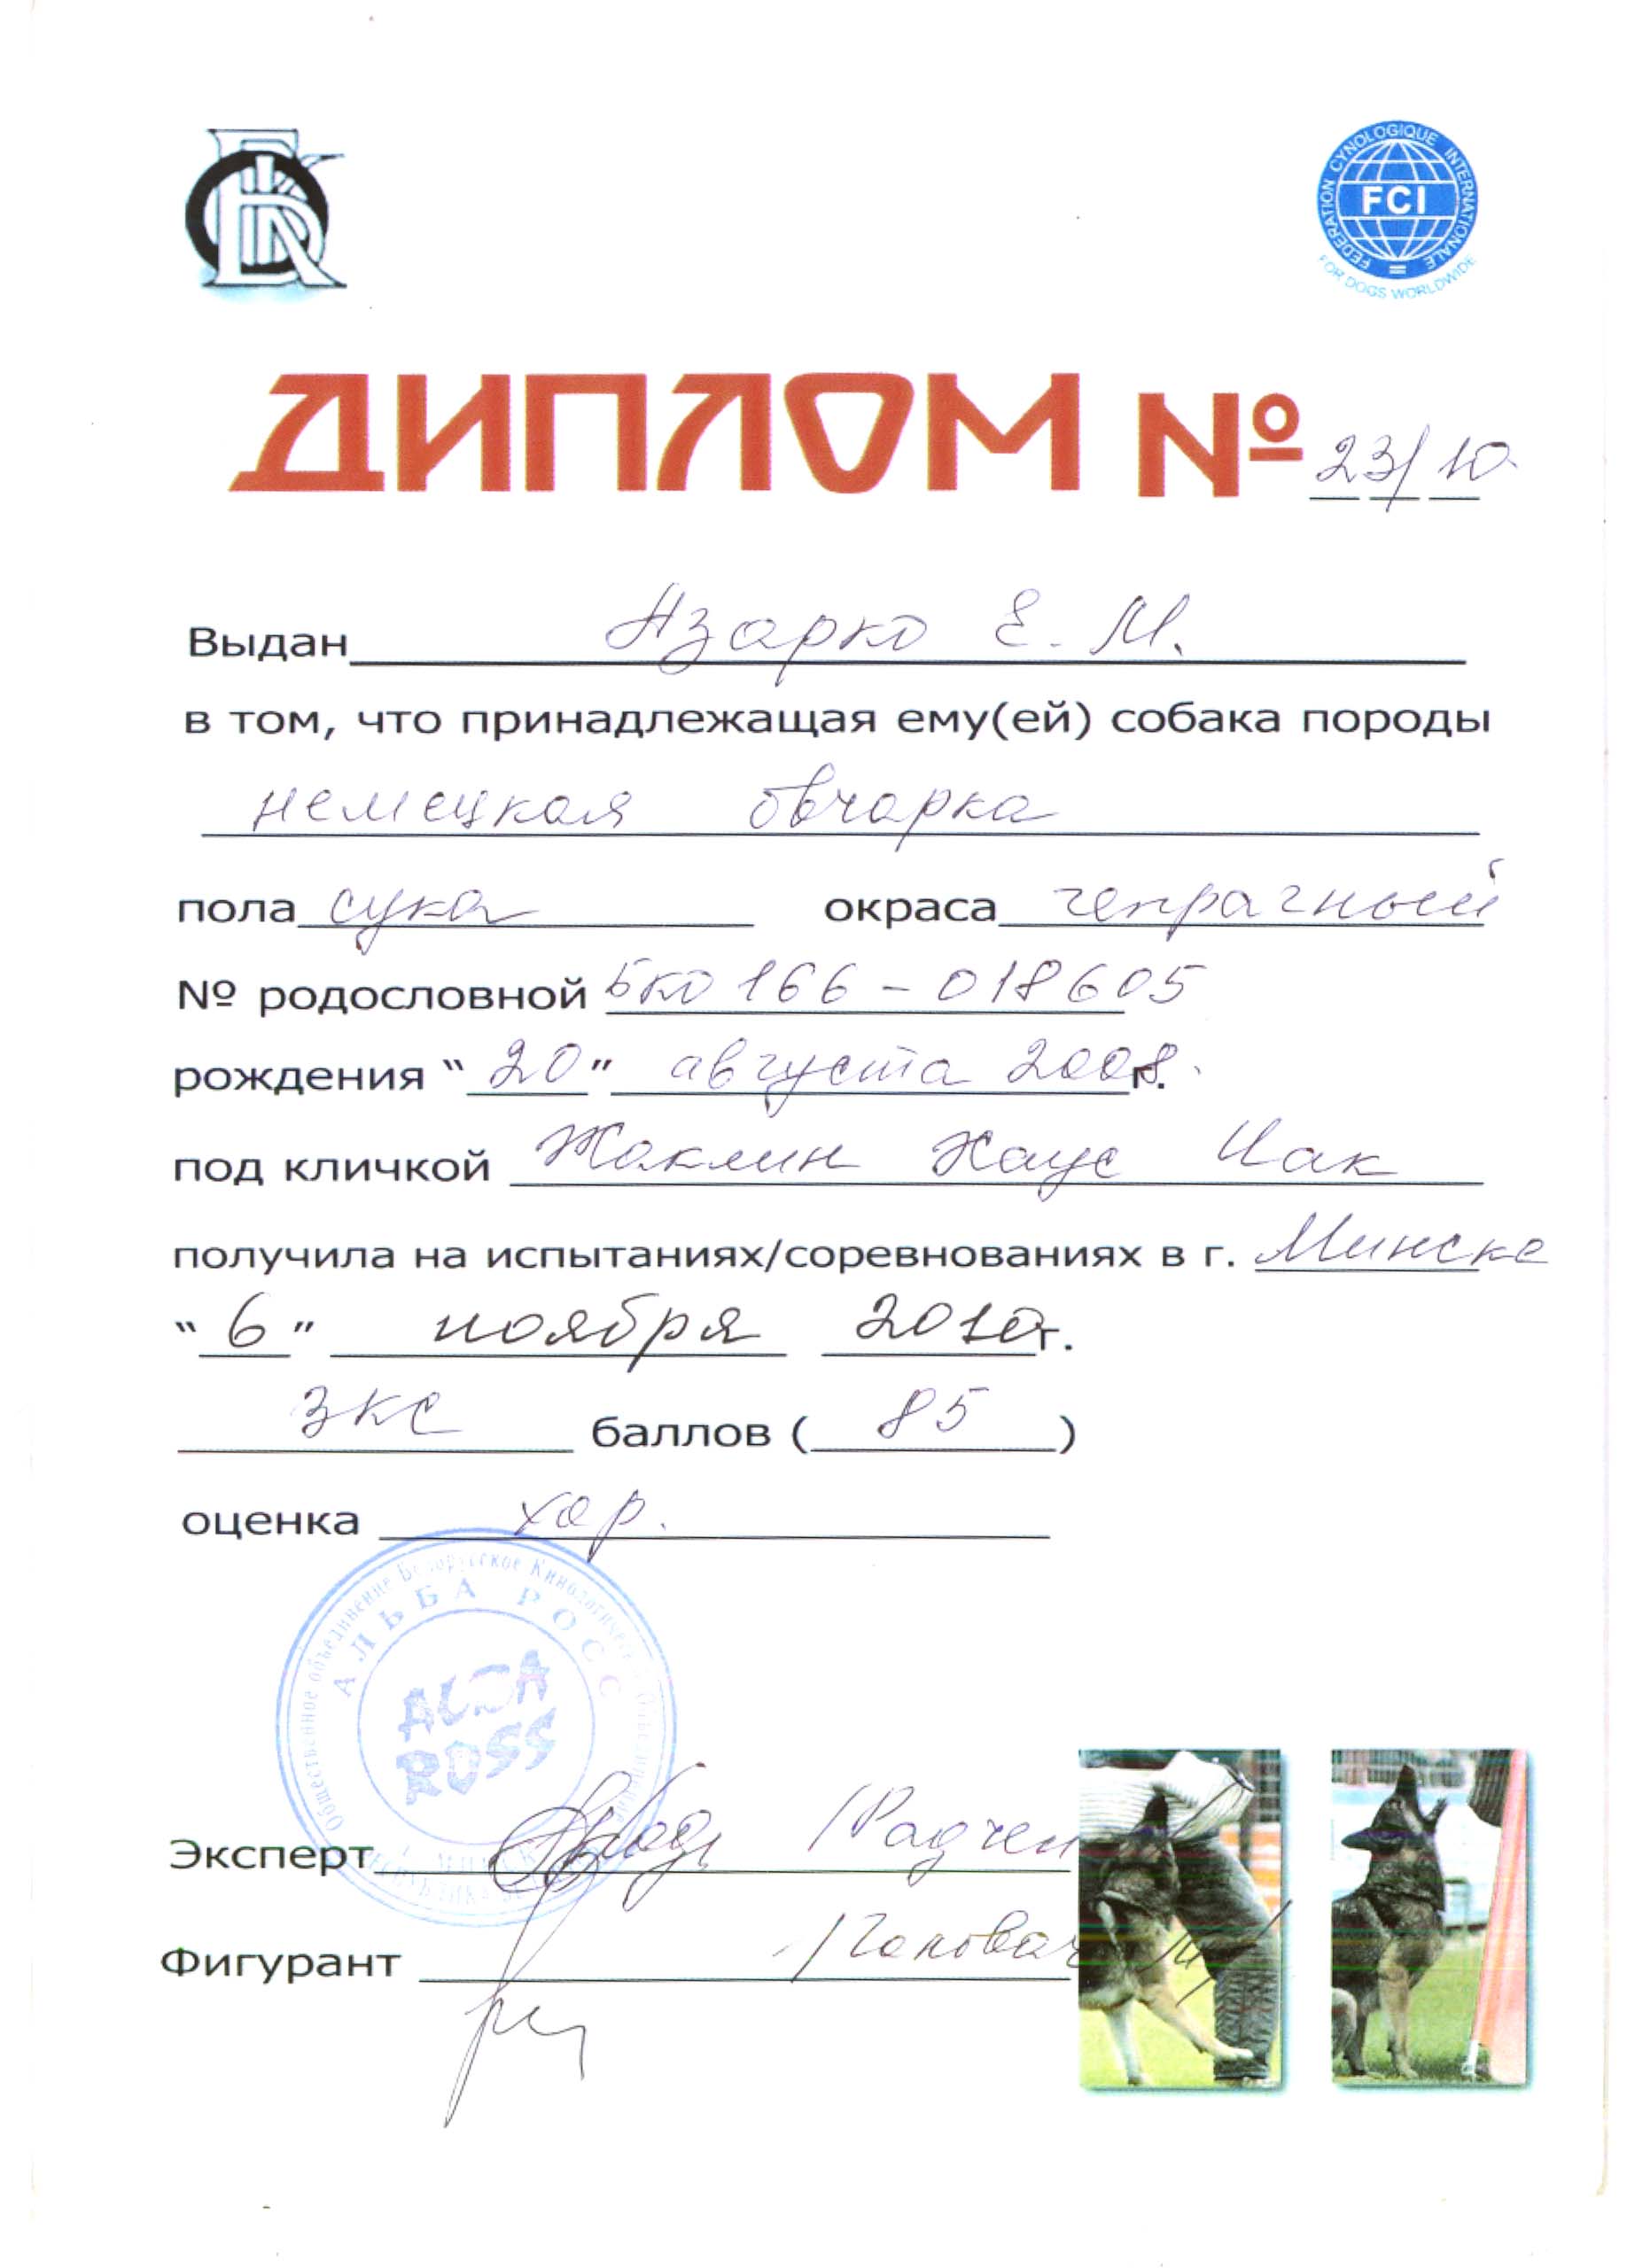 FEDERATION CYNOLOGIQUE INTERNATIONALE
FCI
FOR DOGS WORLDWIDE
ДИПЛОМ № 23/10
Выдан Азарко Е. М.
в том, что принадлежащая ему(ей) собака породы
немецкая овчарка
пола сука окраса чепрачный
№ родословной БКО 166-018605
рождения "20" августа 2008 г.
под кличкой Жаклин Хаус Чак
получила на испытаниях/соревнованиях в г. Минске
"6" ноября 2010 г.
ЗКС баллов (85)
оценка хор.
Общественное объединение Белорусское Кинологическое Объединение
АЛЬБА РОСС
ALBA
ROSS
Эксперт /Радчен
Фигурант /Головач